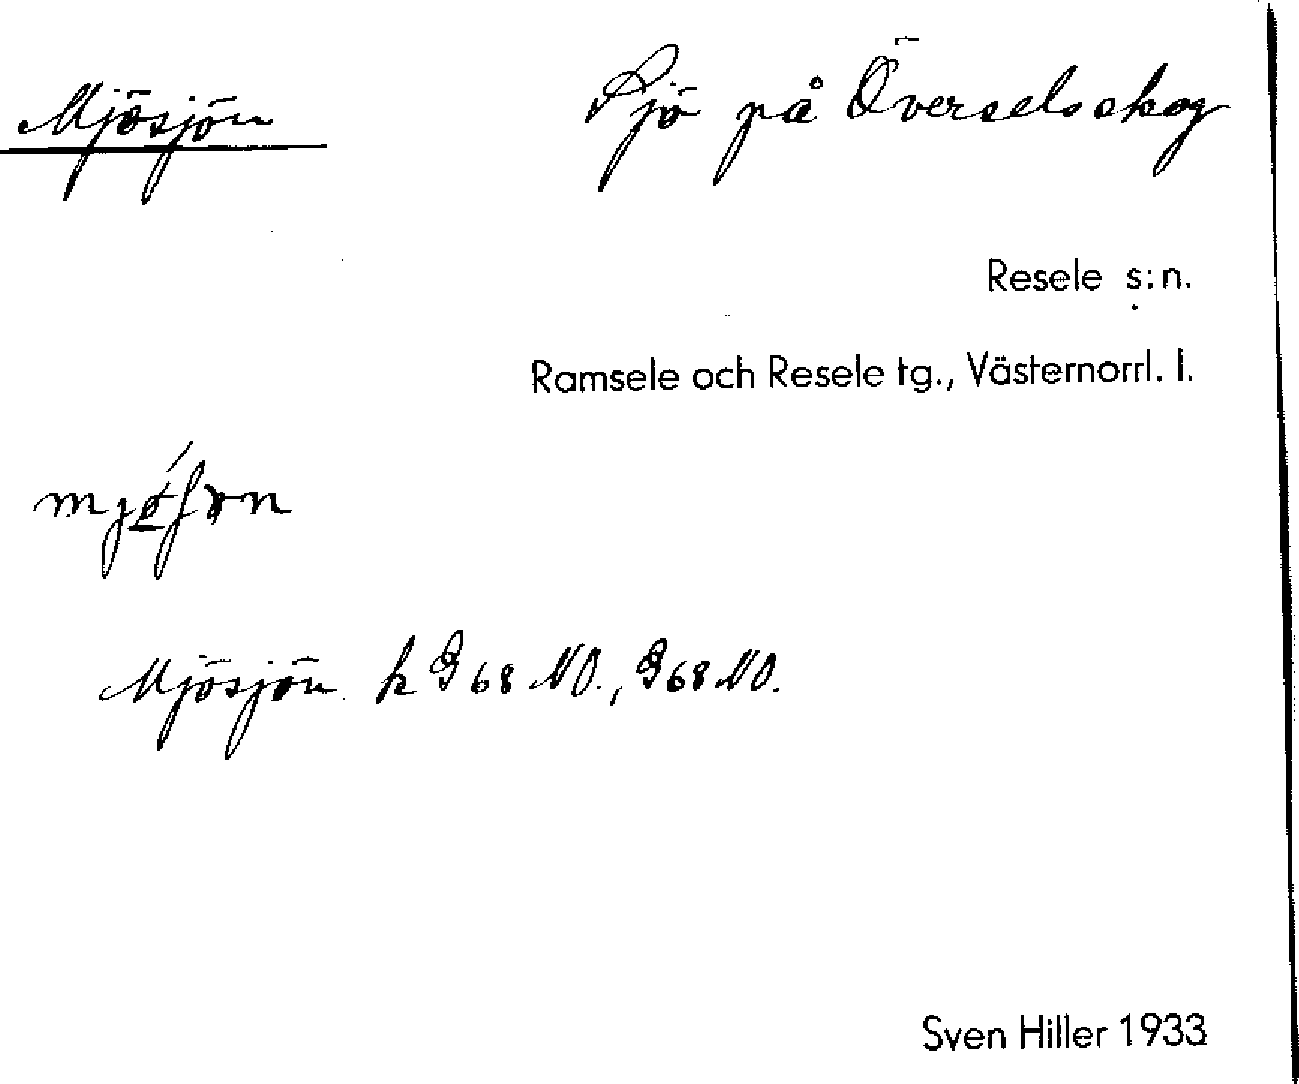 Mjösjön
Sjö på Överselsskog
Resele s:n.
Ramsele och Resele tg., Västernorrl. l.
Mjösjön k G 68 NO., G 68 NO.
Sven Hiller 1933